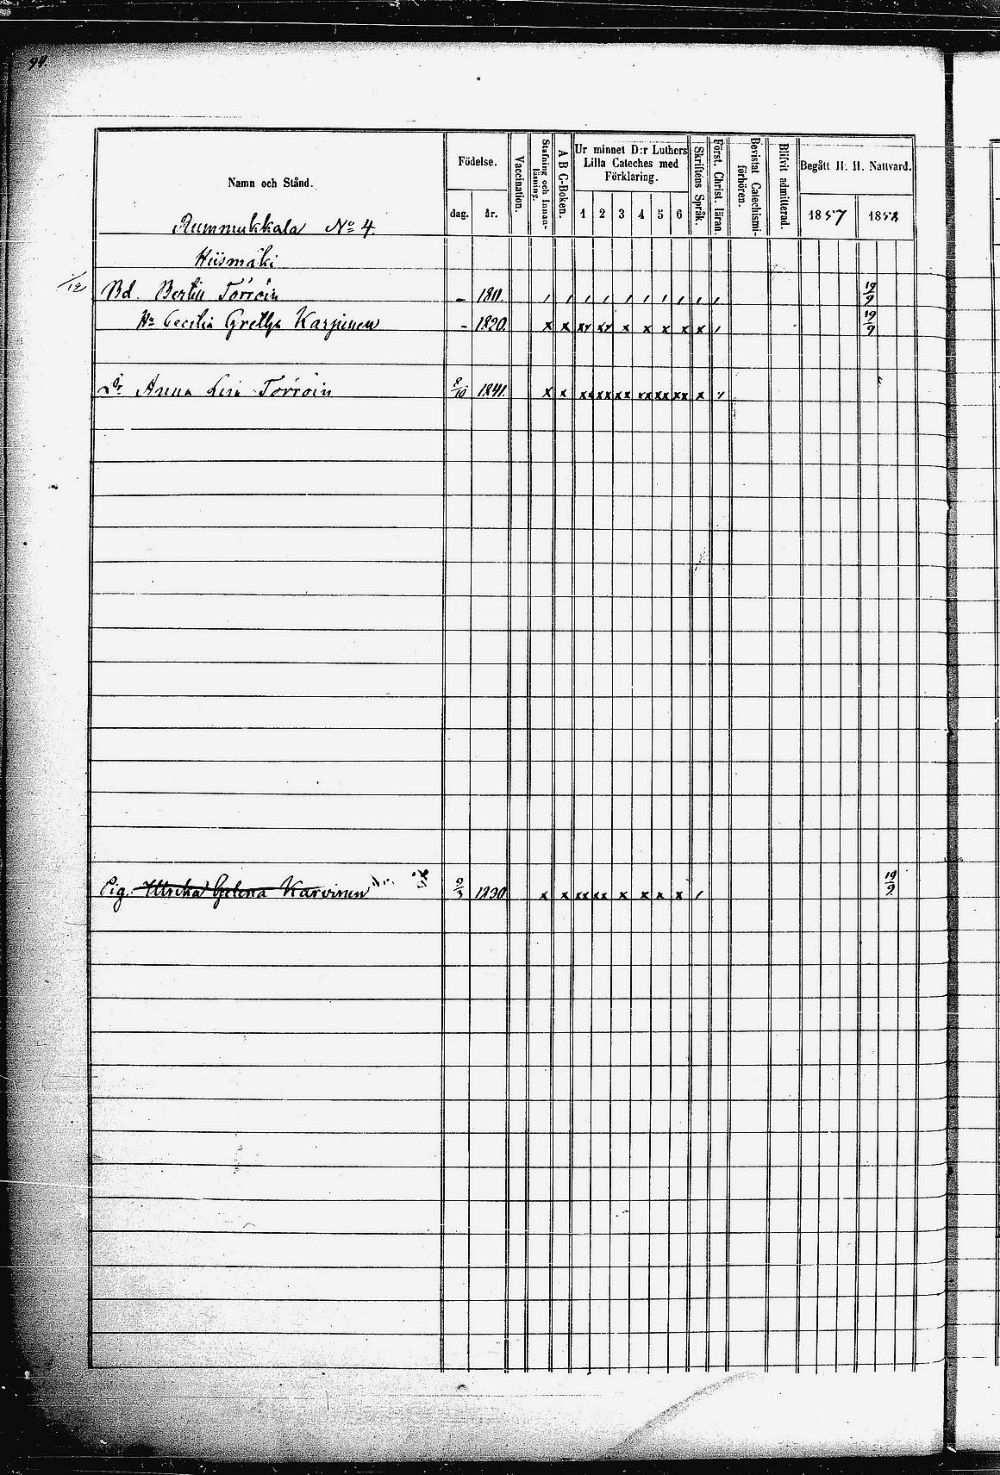 94.
Namn och Stånd.
Födelse.
dag.
år.
Vaccination.
Stafning och Innan-
läsning.
A B C-Boken.
Ur minnet D:r Luthers
Lilla Cateches med
Förklaring.
1 2 3 4 5 6
Skriftens Språk.
Först. Christ. läran.
Bevistat Catechismi-
förhören.
Blifvit admitterad.
Begått H. H. Nattvard.
1857 1858
Rummukkala No 4
Hiismäki
Bd. Bertill Törröin - 1811. 19/9
Hu Cecilia Gretha Karjunen - 1820. x x xx xx x x x x x 19/9
Dr Anna Lisa Törröin 8/10 1841. x x xx xx xx xx xx xx x
Pig. Ulrika Helena Karvinen 9/3 1830. x x xx xx x x x x 19/9